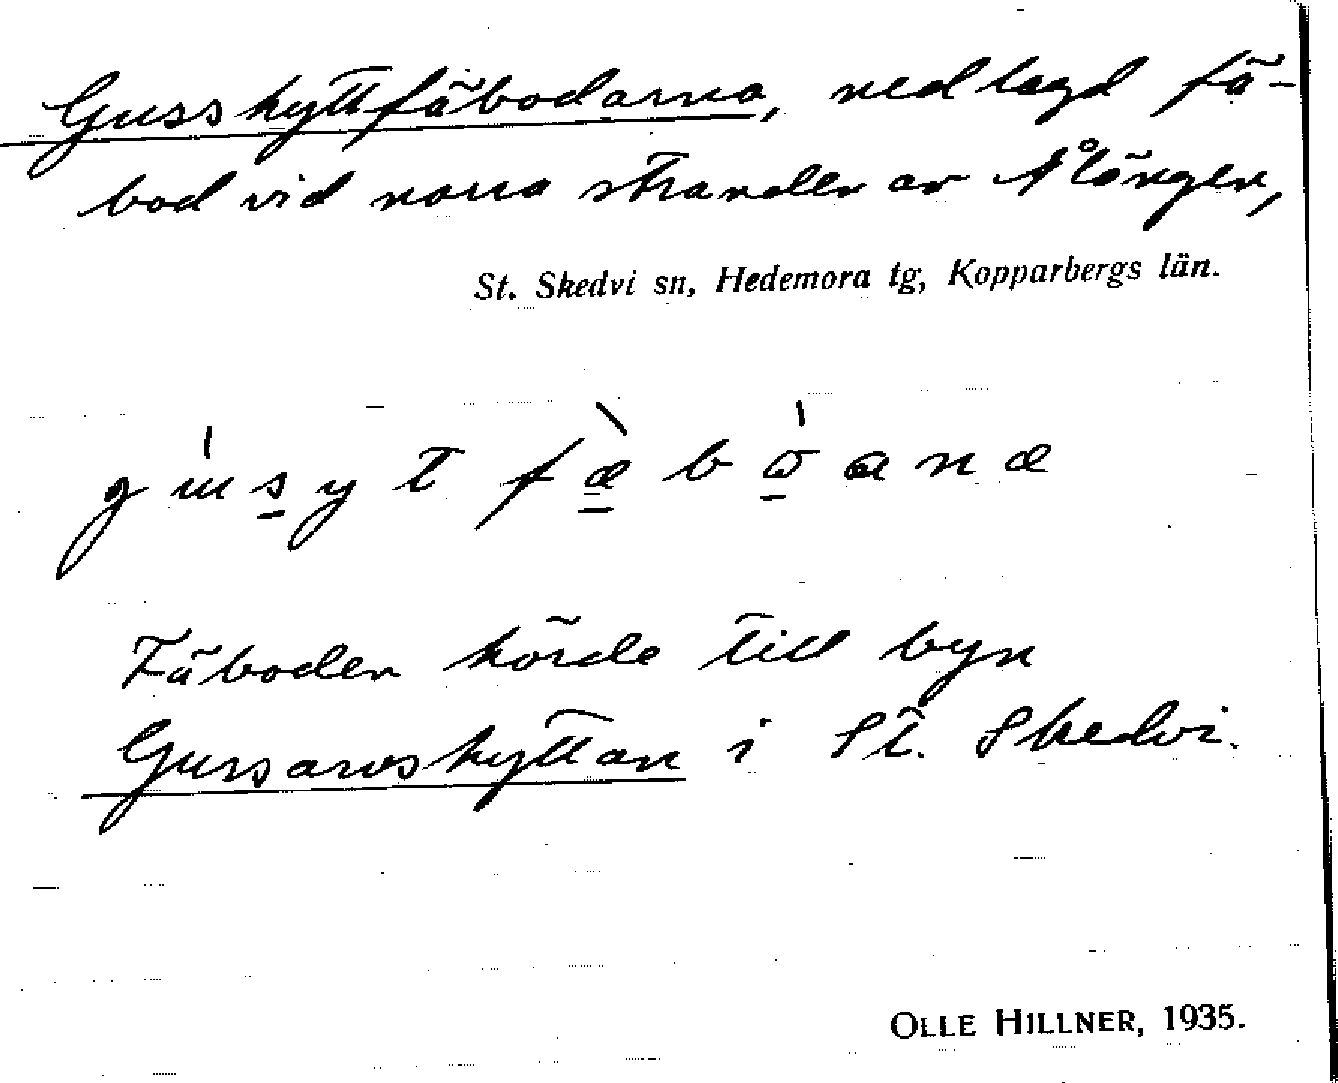 Gusshyttfäbodarna, nedlagd fä-
bod vid norra stranden av Ålången,
St. Skedvi sn, Hedemora tg, Kopparbergs län.
Fäboden hörde till byn
Gussarvshyttan i St. Skedvi.
OLLE HILLNER, 1935.